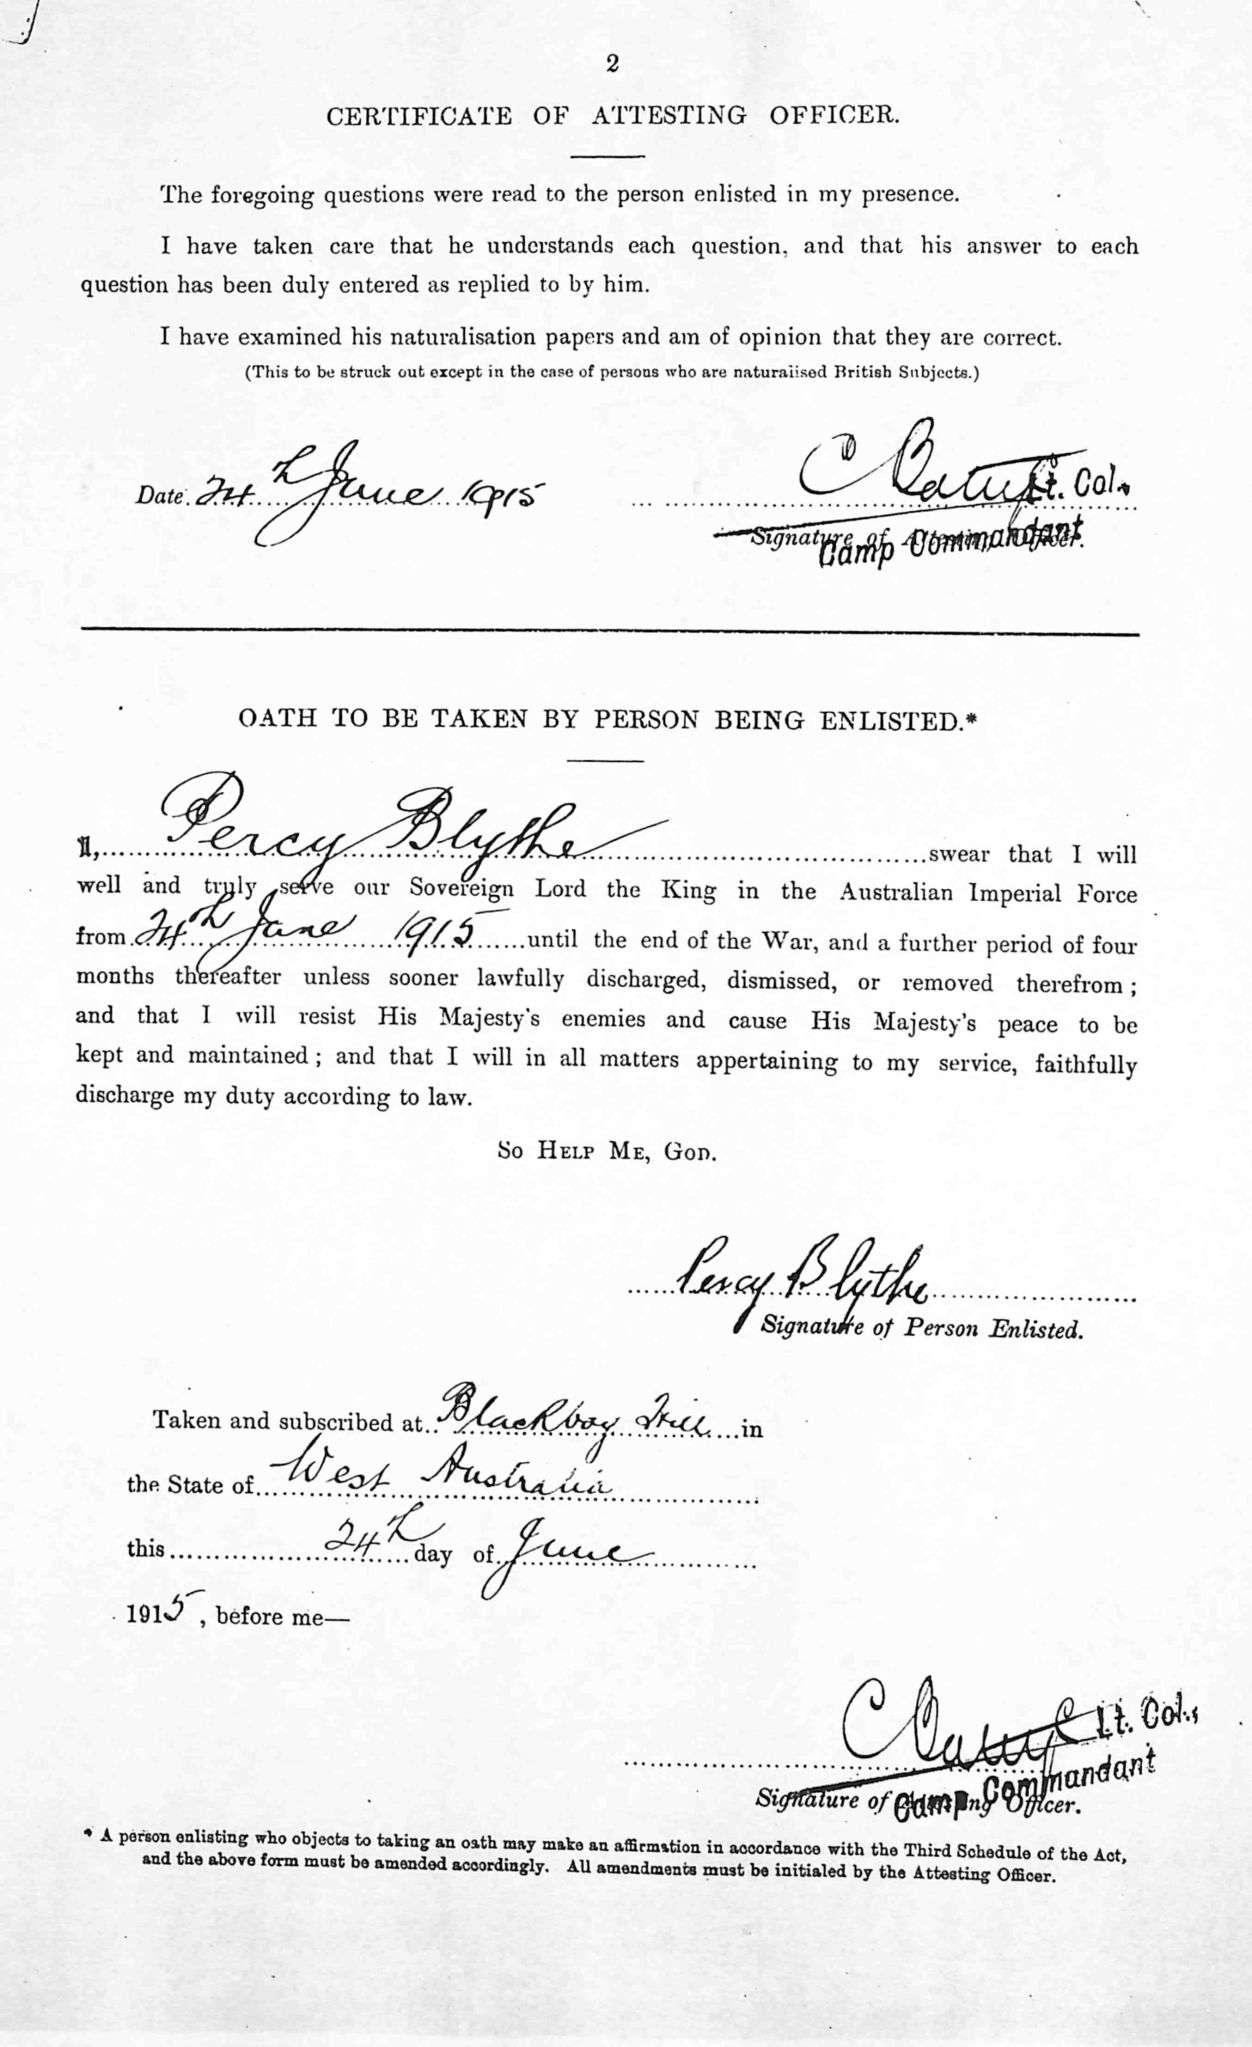 2
CERTIFICATE OF ATTESTING OFFICER.
The foregoing questions were read to the person enlisted in my presence.
I have taken care that he understands each question, and that his answer to each
question has been duly entered as replied to by him.
I have examined his naturalisation papers and am of opinion that they are correct.
(This to be struck out except in the case of persons who are naturalised British Subjects.)
Date 24th June 1915
C Lt. Col.
Signature of Attesting Officer.
Camp Commandant
OATH TO BE TAKEN BY PERSON BEING ENLISTED.*
I, Percy Blythe swear that I will
well and truly serve our Sovereign Lord the King in the Australian Imperial Force
from 24th June 1915 until the end of the War, and a further period of four
months thereafter unless sooner lawfully discharged, dismissed, or removed therefrom;
and that I will resist His Majesty's enemies and cause His Majesty's peace to be
kept and maintained; and that I will in all matters appertaining to my service, faithfully
discharge my duty according to law.
SO HELP ME, GOD.
Percy Blythe
Signature of Person Enlisted.
Taken and subscribed at Blackboy Hill in
the State of West Australia
this 24th day of June
1915, before me—
C Lt. Col.,
Camp Commandant
Signature of Attesting Officer.
* A person enlisting who objects to taking an oath may make an affirmation in accordance with the Third Schedule of the Act,
and the above form must be amended accordingly. All amendments must be initialed by the Attesting Officer.